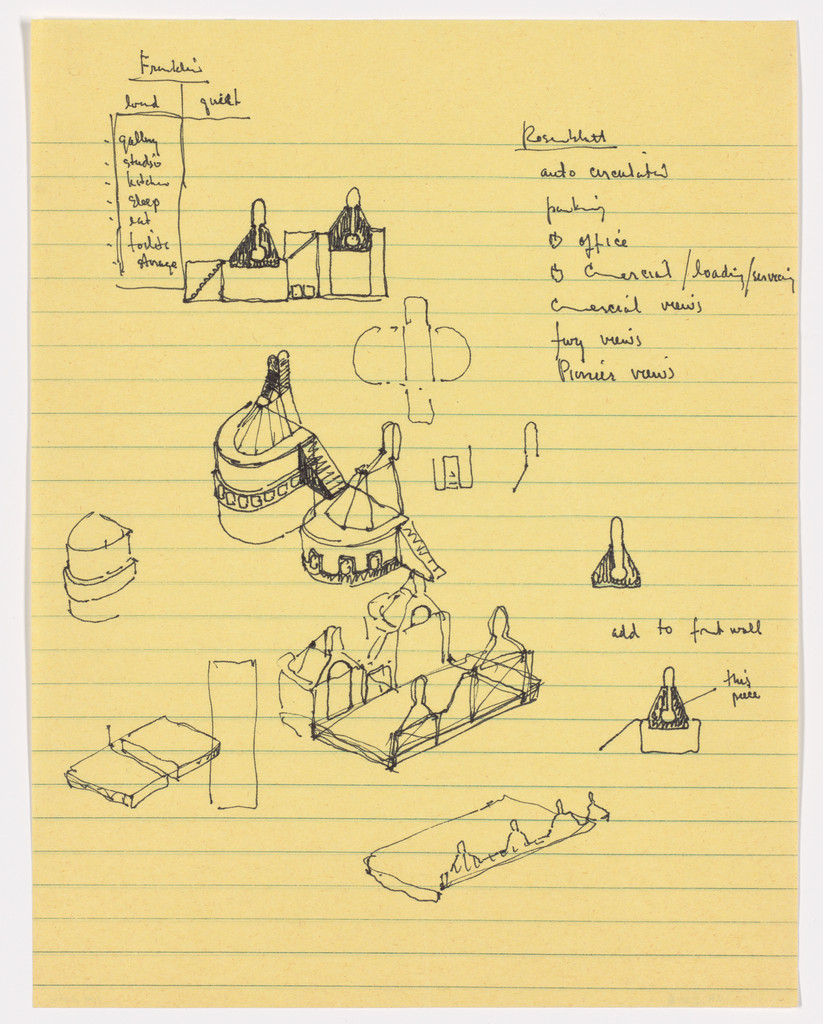 Franklin
loud quiet
- gallery
- studio
- kitchen
- sleep
- eat
- toilets
- storage
Rosenblatt
auto circulation
parking
① office
② Comercial / loading / servicing
Comercial views
fwy views
Pioneer views
add to front wall
this
piece